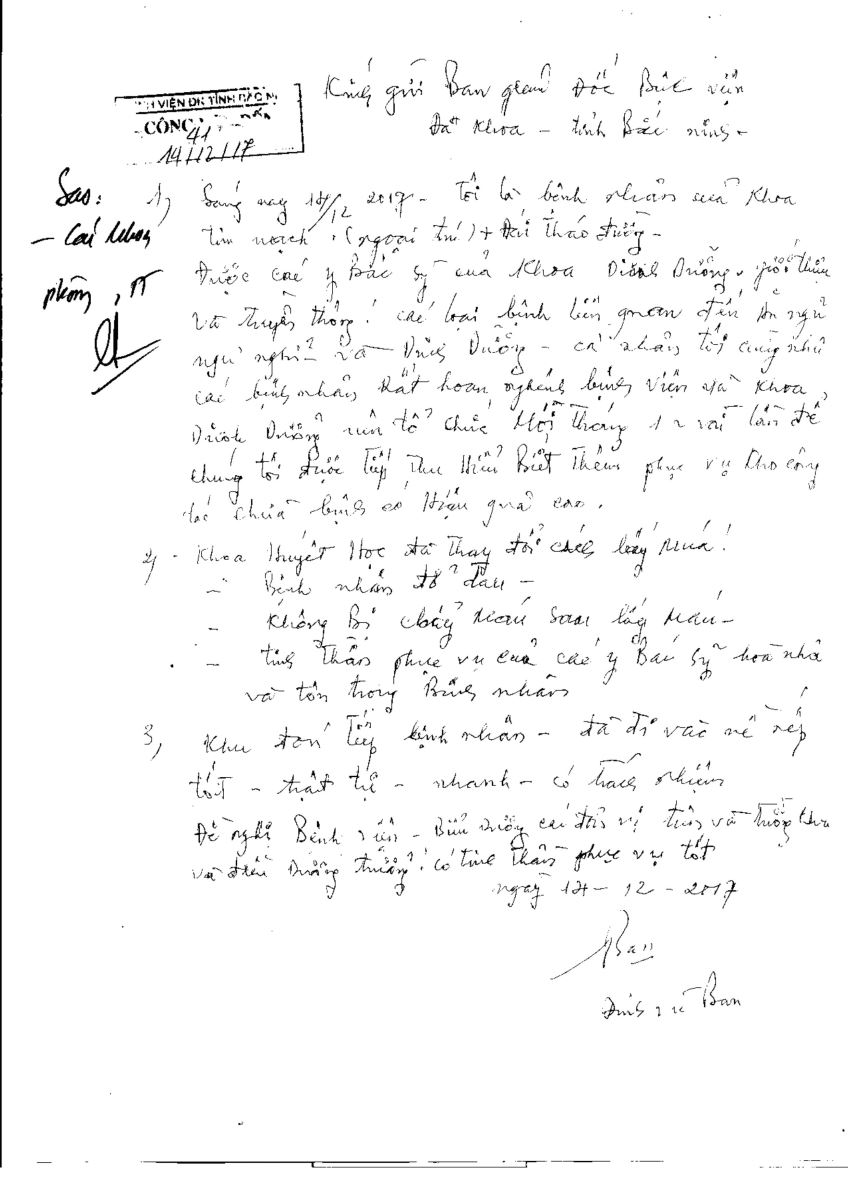 Kính gửi Ban giám Đốc Bệnh viện
Đa Khoa - tỉnh Bắc ninh -
VIỆN ĐK TỈNH BẮC
CÔNG
41
14/12/17
Sao:
- Các khoa
phòng, TT
1, Sáng nay 14/12 2017 - Tôi là bệnh nhân của Khoa
tim mạch. (ngoại trú) + Đái tháo đường -
Được các y Bác sỹ của Khoa Dinh Dưỡng, giới thiệu
và truyền thông! các loại bệnh liên quan đến ăn ngủ
nghỉ và Dinh Dưỡng - cá nhân tôi cũng như
các bệnh nhân Rất hoan nghênh bệnh viện và Khoa
Dinh Dưỡng nên tổ chức Mỗi tháng 1 vài lần để
chúng tôi được tiếp thu Hiểu Biết thêm phục vụ cho công
tác chữa bệnh có Hiệu quả cao.
2, - Khoa Huyết Học đã thay đổi cách lấy Máu!
- Bệnh nhân đỡ đau -
- Không Bị chảy Máu sau lấy Máu -
- tinh thần phục vụ của các y Bác sỹ hoà nhã
và tôn trọng Bệnh nhân
3, Khu đón tiếp bệnh nhân - đã đi vào nề nếp
tốt - trật tự - nhanh - có trách nhiệm
Đề nghị Bệnh viện - Biểu Dương các đơn vị trên và trưởng khoa
và điều Dưỡng trưởng! có tinh thần phục vụ tốt
ngày 14 - 12 - 2017
Ban
Đinh Ban